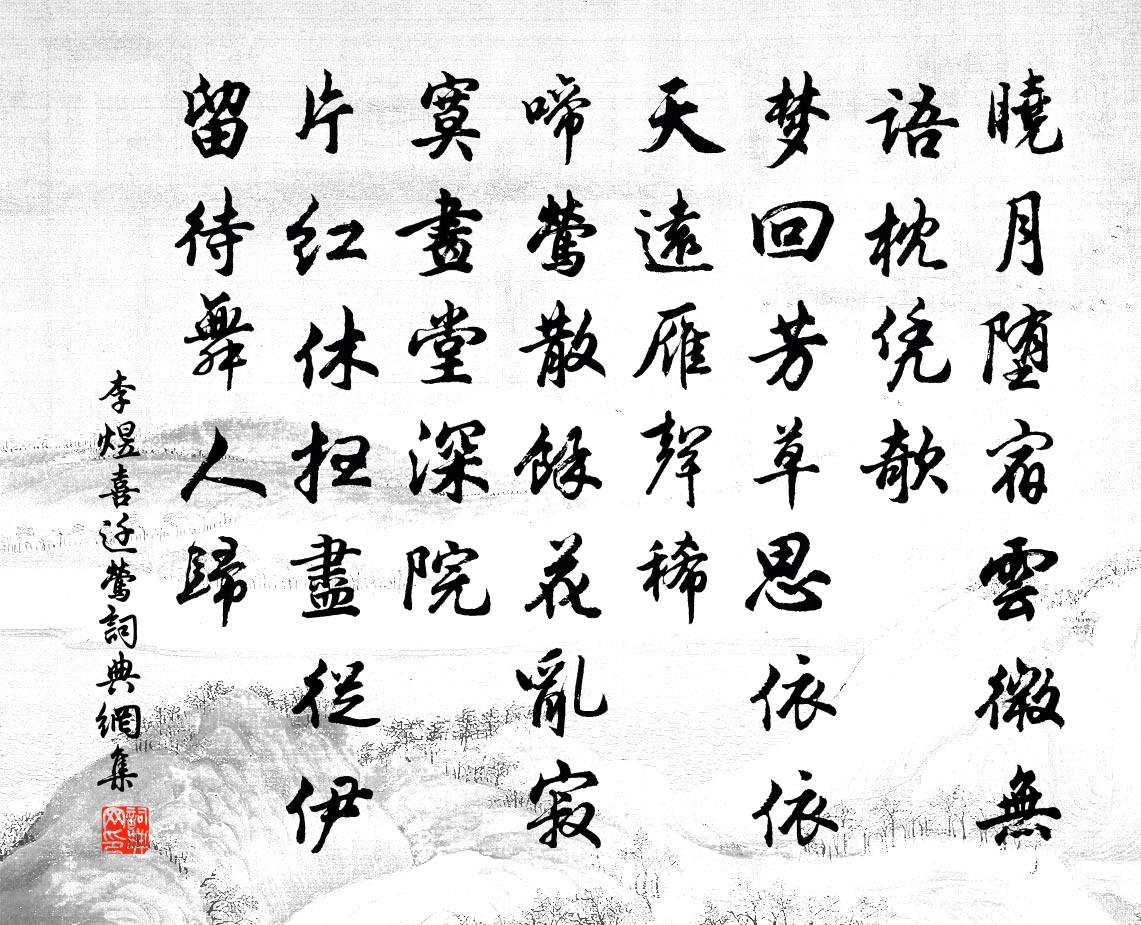 曉月堕宿雲微無
語枕凭欹
梦回芳草思依依
天遠雁聲稀
啼鶯散餘花亂寂
寞畫堂深院
片红休扫盡從伊
留待舞人歸
李煜喜迁鶯詞典網集